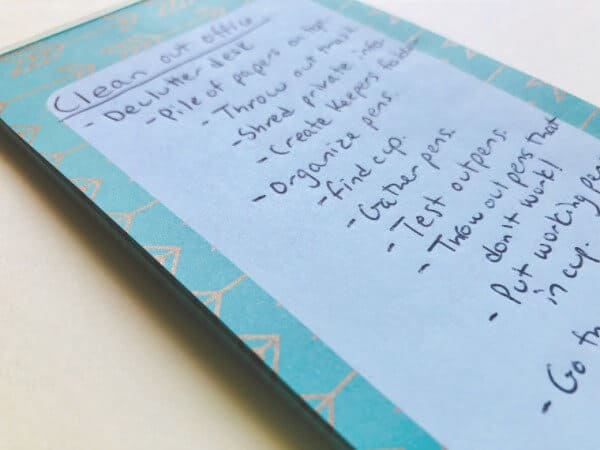 Clean out office
- Declutter desk
- Pile of papers on
- Throw out trash
- Shred private info.
- Create keepers folder
- Organize pens.
- Find cup.
- Gather pens.
- Test out pens.
- Throw out pens that
don't work!
- Put working pens
in cup.
- Go